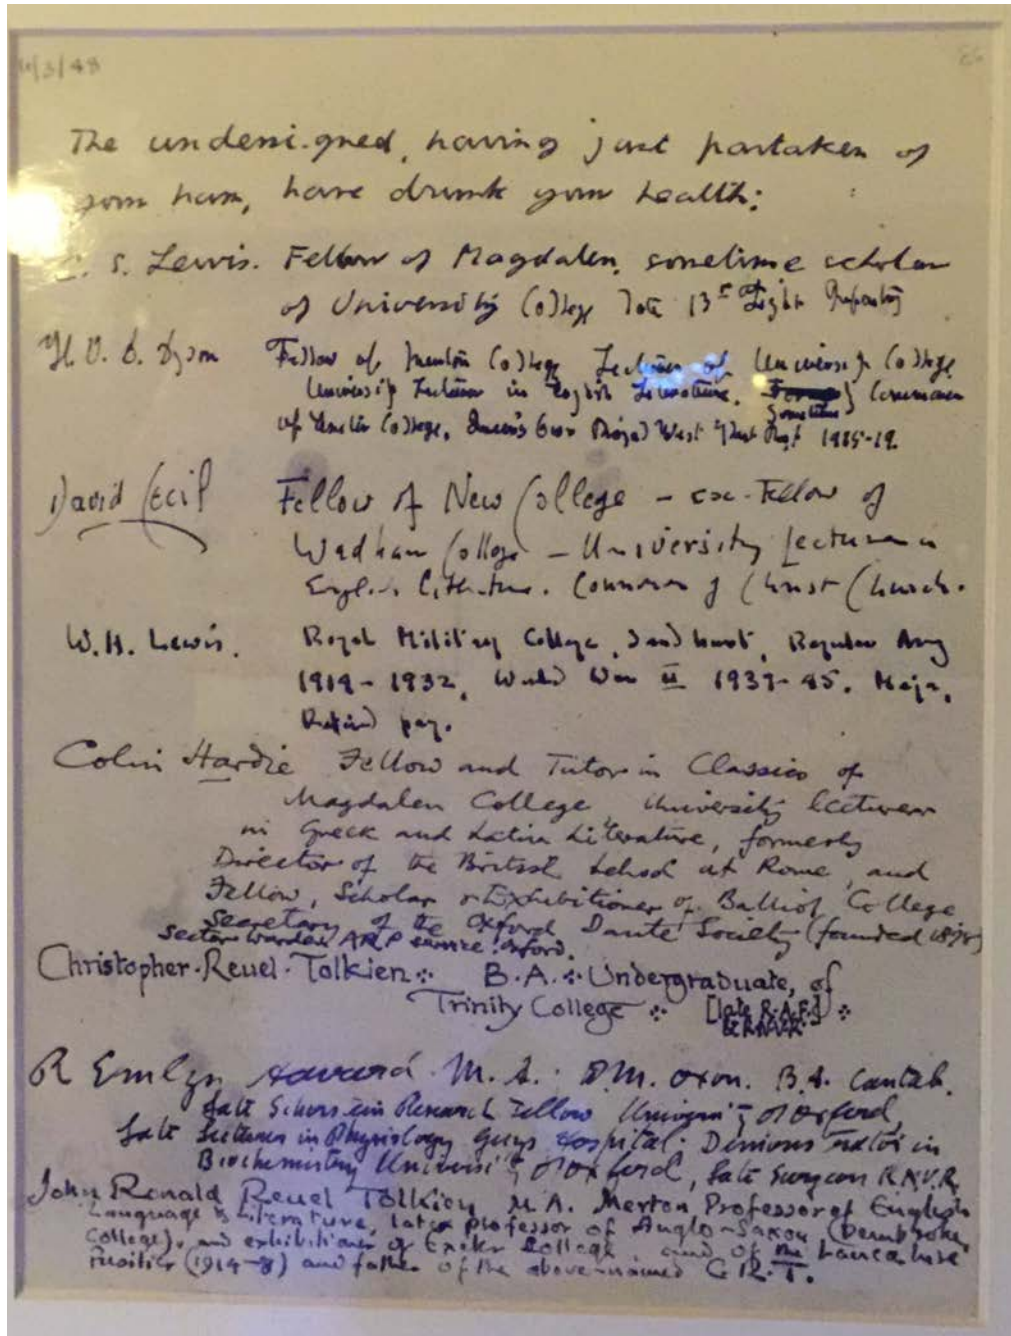 11/3/48
The undersigned, having just partaken of
your ham, have drunk your health:
C. S. Lewis. Fellow of Magdalen, sometime scholar
of University College late 13th Light Infantry
H. V. D. Dyson Fellow of Merton College Lecturer of University College
University Lecturer in English Literature. Sometime Commoner
of Exeter College, Queen's Own Royal West Kent Regt 1915-19.
David Cecil Fellow of New College – ex-Fellow of
Wadham College – University Lecturer in
English Literature. Commoner of Christ Church.
W.H. Lewis. Royal Military College, Sandhurst, Regular Army
1914-1932, World War II 1939-45. Major,
Retired pay.
Colin Hardie Fellow and Tutor in Classics of
Magdalen College University Lecturer
in Greek and Latin Literature, formerly
Director of the British School at Rome, and
Fellow, Scholar & Exhibitioner of Balliol College
Secretary of the Oxford Dante Society (founded
Sector Warden ARP service Oxford.
Christopher Reuel Tolkien B.A. Undergraduate, of
Trinity College [late R.A.F.]
R Emlyn Havard. M.A. D.M. Oxon. B.A. Cantab.
Late Schorstein Research Fellow University of Oxford,
Late Lecturer in Physiology Guys Hospital. Demonstrator in
Biochemistry University of Oxford, Late Surgeon R.N.V.R.
John Ronald Reuel Tolkien M.A. Merton Professor of English
Language & Literature, late professor of Anglo-Saxon (Pembroke
College), and exhibitioner of Exeter College, and of the Lancashire
Fusilier (1914-8) and father of the above-named C.R.T.